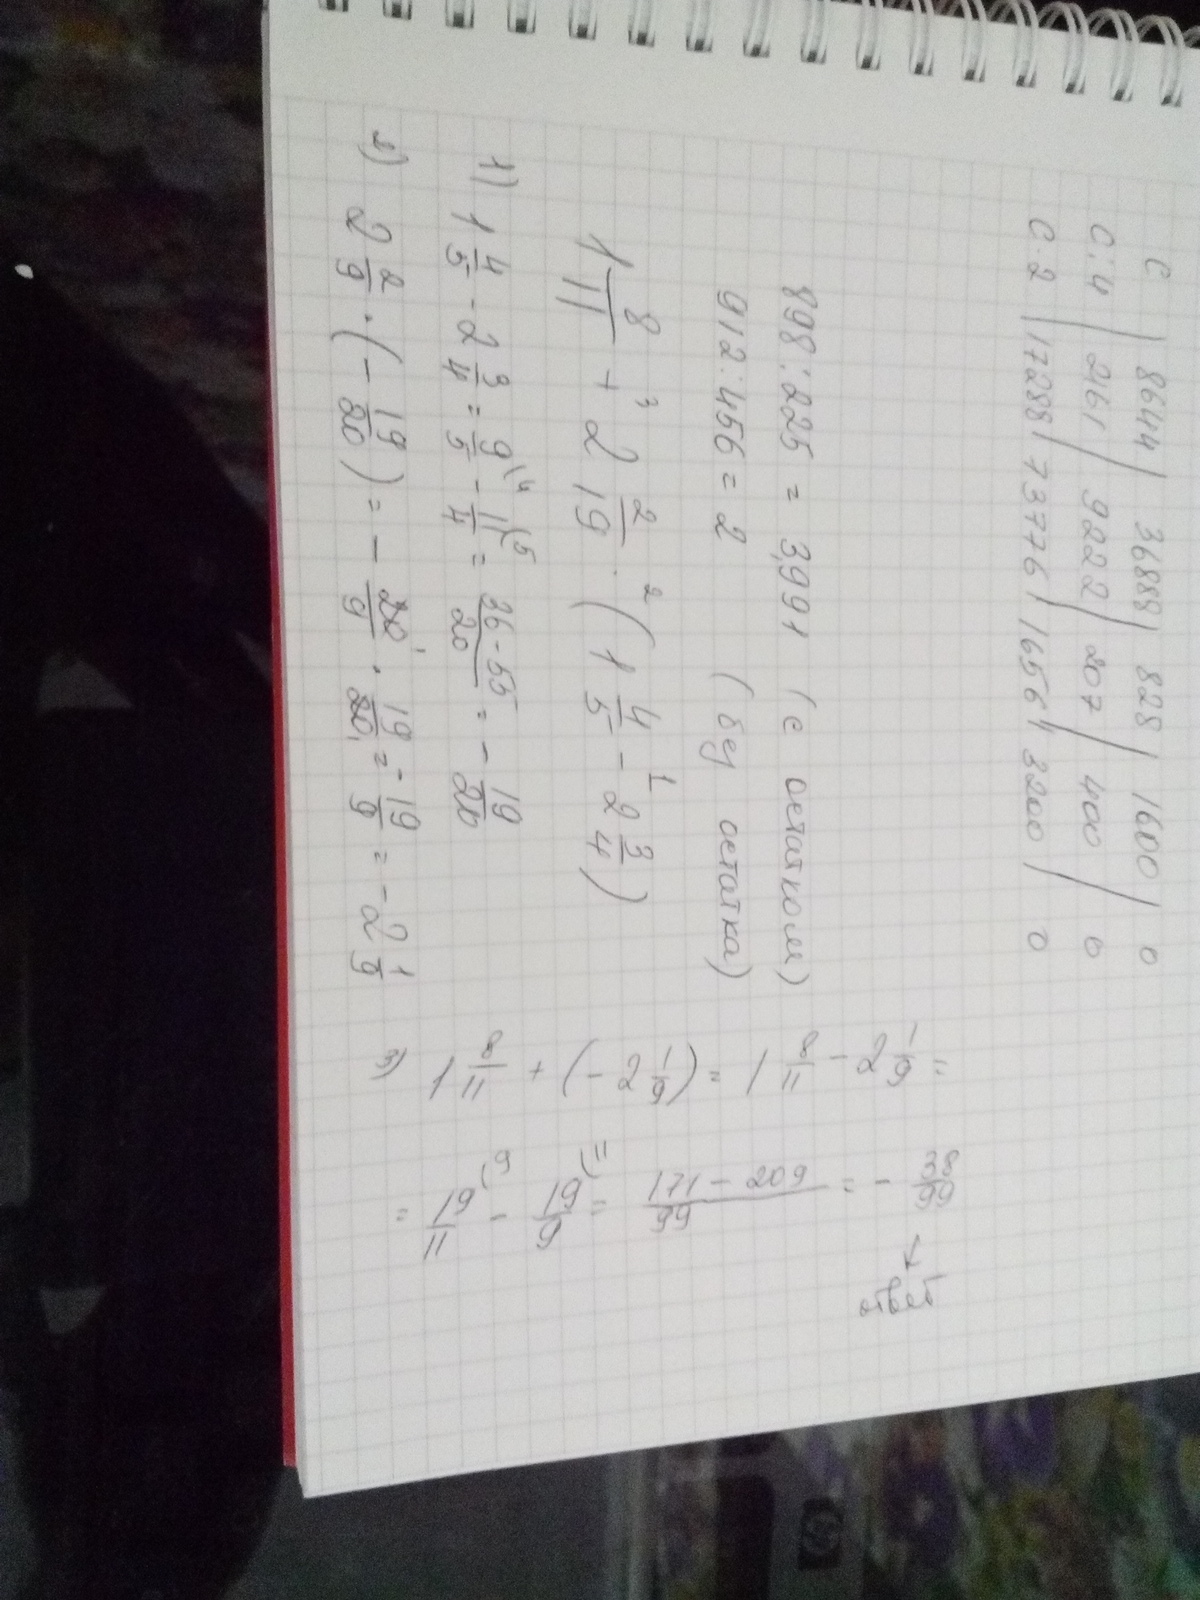 c | 8644 | 36888 | 828 | 1600 | 0
c:4 | 2461 | 9222 | 207 | 400 | 0
c 2 | 17288 | 73776 | 1656 | 3200 | 0
898:225 = 3,991 (с остатком)
912:456 = 2 (без остатка)
1 8/11 +³ 2 2/19 ·² (1 4/5 -¹ 2 3/4)
1) 1 4/5 - 2 3/4 = 9/5 (4 - 11/4 (5 = 36-55/20 = - 19/20
2) 2 2/9 · (- 19/20) = - 20/9 · 19/20 = - 19/9 = -2 1/9
3) 1 8/11 + (- 2 1/9) = 1 8/11 - 2 1/9 =
= 19/11 (9 - 19/9 (11 = 171-209/99 = - 38/99
ответ
hp